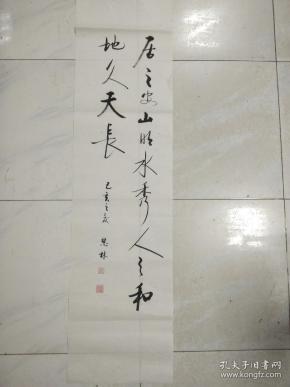 居之安山明水秀人之和
地久天長
己亥之夏 思林
孔夫子旧书网